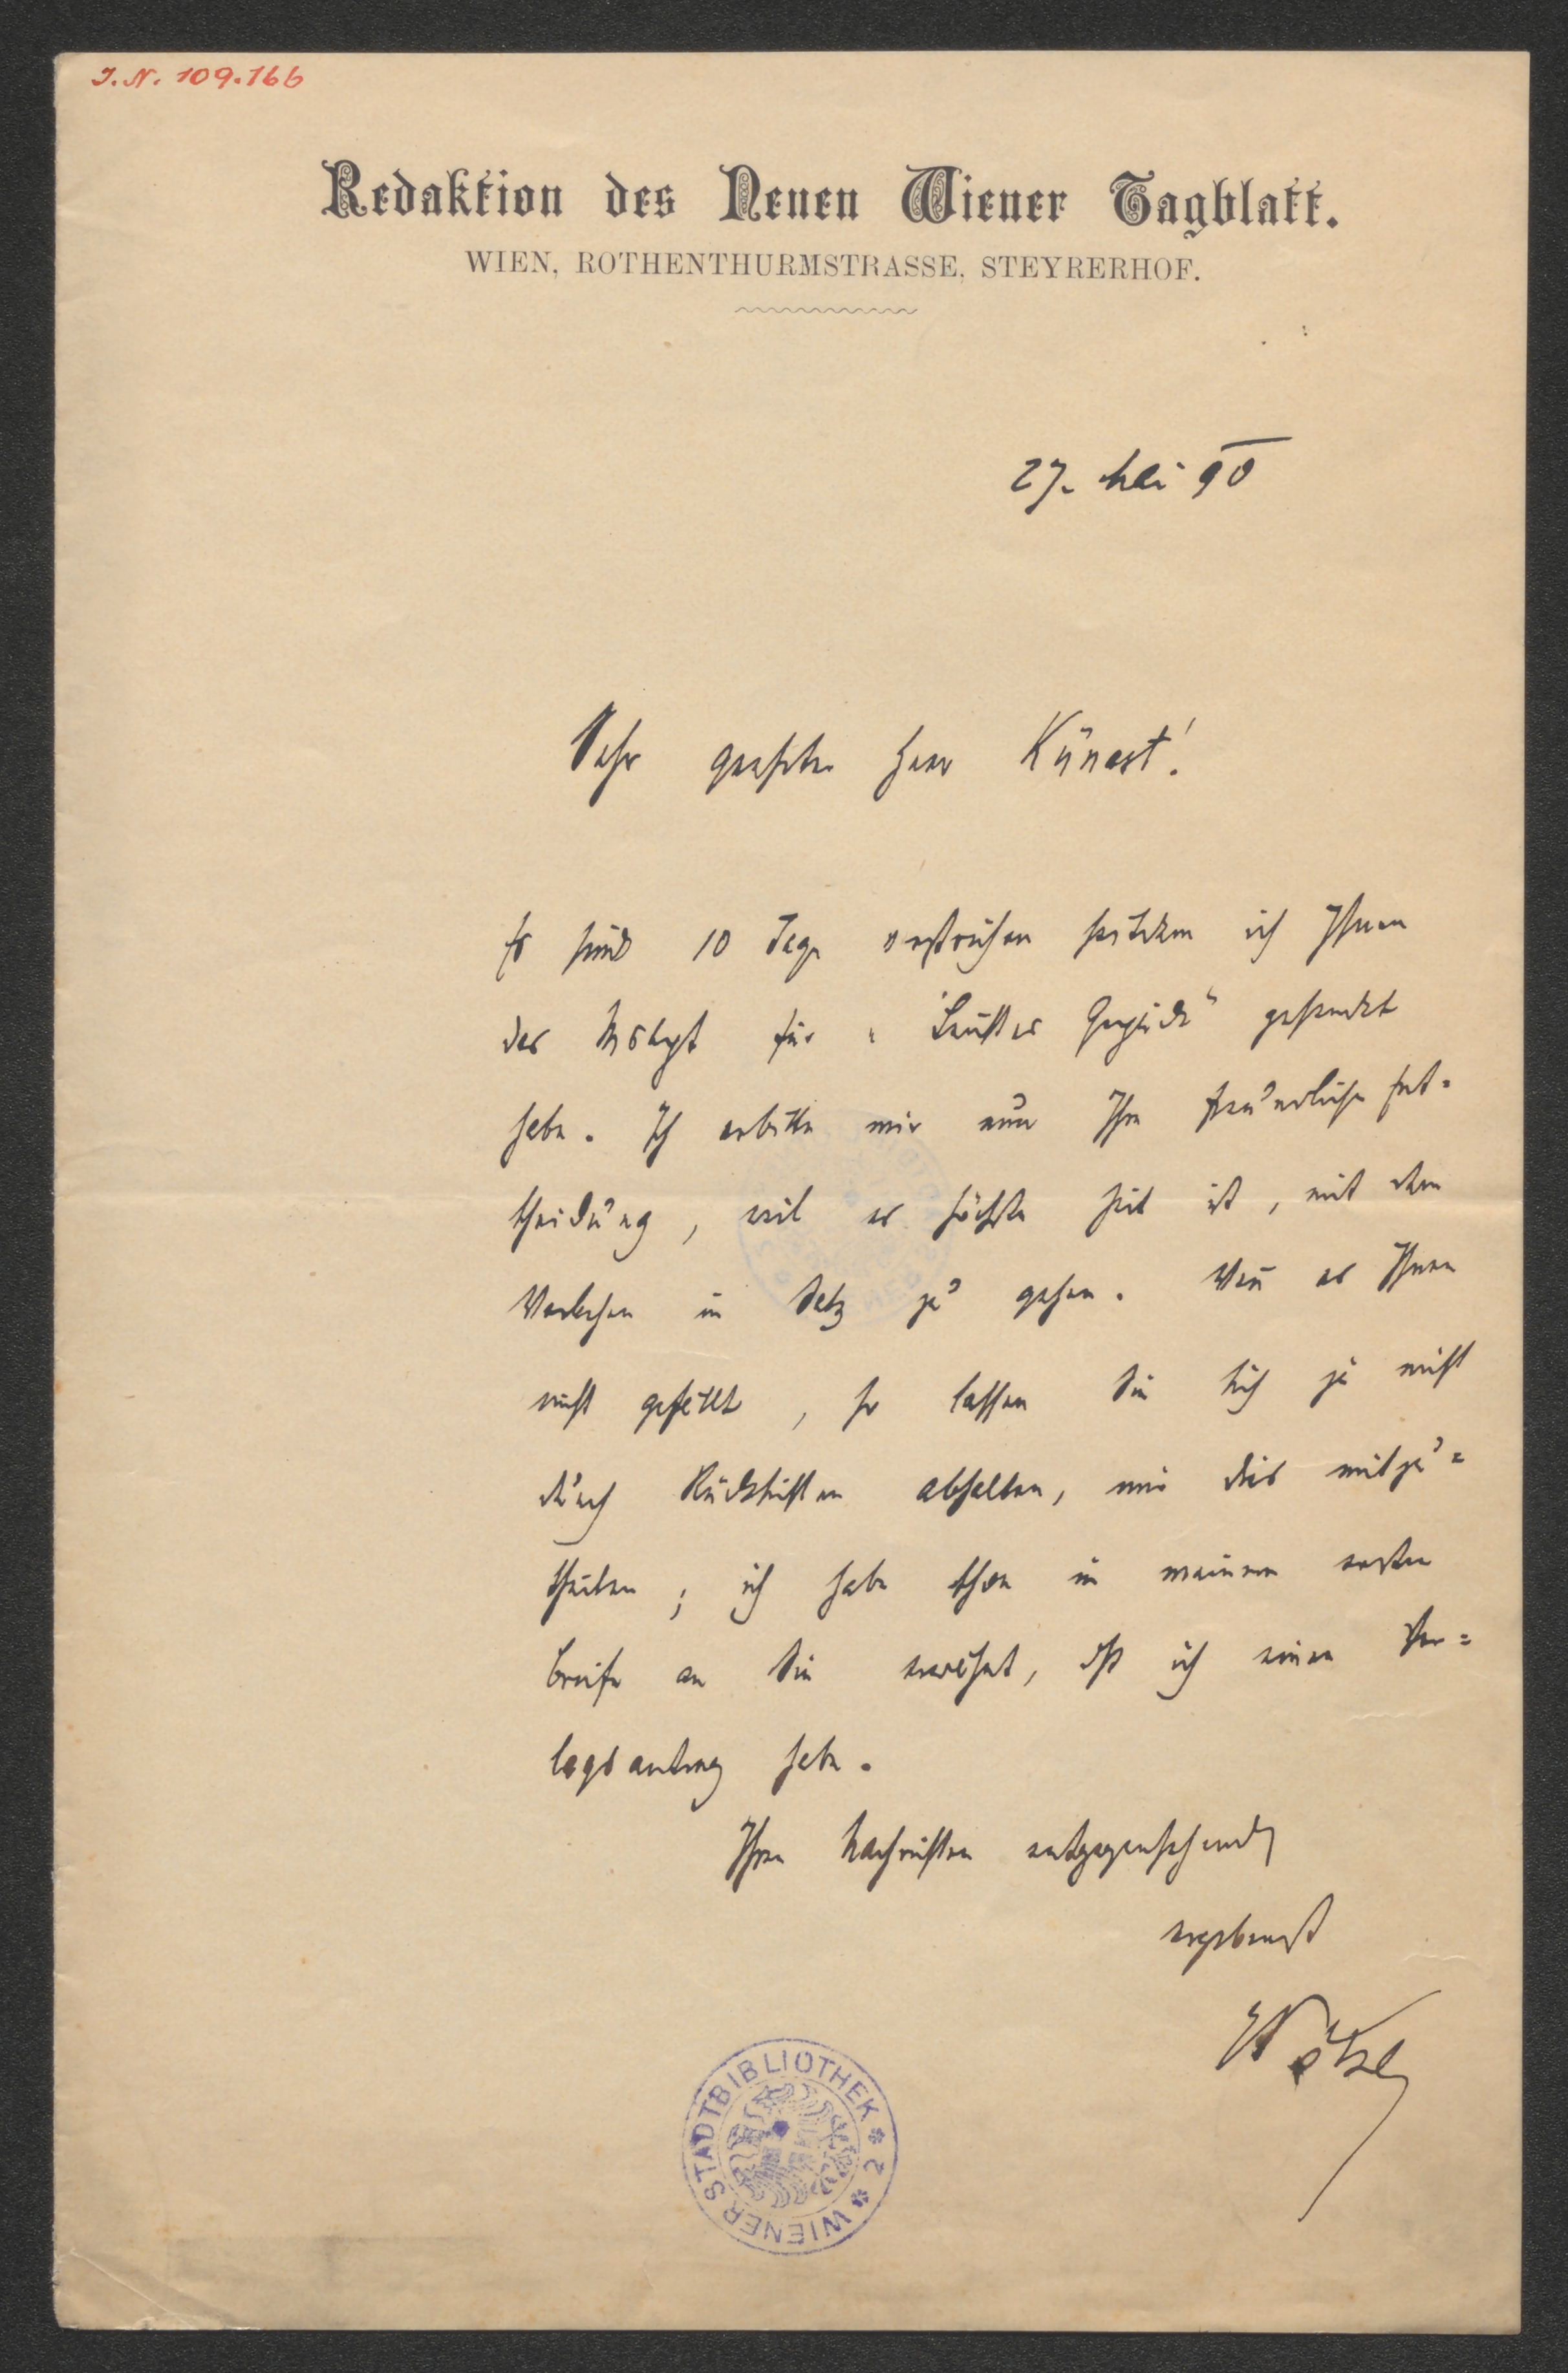 J. N. 109.166
Redaktion des Neuen Wiener Tagblatt.
WIEN, ROTHENTHURMSTRASSE, STEYRERHOF.
27. Mai 90
Sehr geehrter Herr Künast!
Es sind 10 Tage verstrichen seitdem ich Ihnen
das Mskrpt für „Lauter Gepäck“ gesendet
habe. Ich erbitte mir nun Ihre freundliche Ent=
scheidung, weil es höchste Zeit ist, mit dem
in Satz zu gehen. Wen̅ es Ihnen
nicht gefällt, so lassen Sie sich ja nicht
durch Rücksichten abhalten, mir dies mitzu=
theilen; ich habe schon in meinem ersten
Briefe an Sie erwähnt, daß ich einen Ver=
lagsantrag habe.
Ihren Nachrichten entgegensehend
ergebenst
Pötzl
WIENER STADTBIBLIOTHEK * 2 *